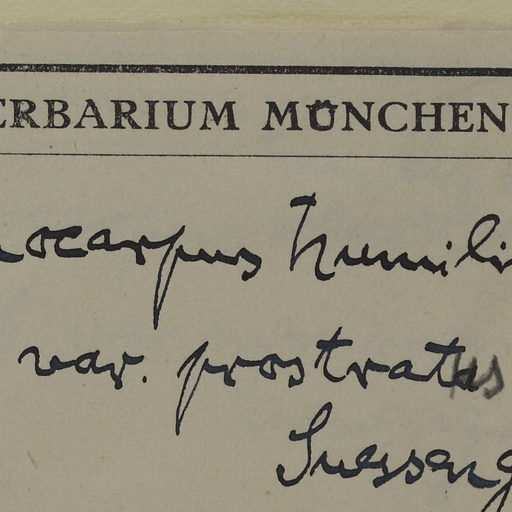 ERBARIUM MÜNCHEN
ocarpus humili
var. prostratus
Suesseng